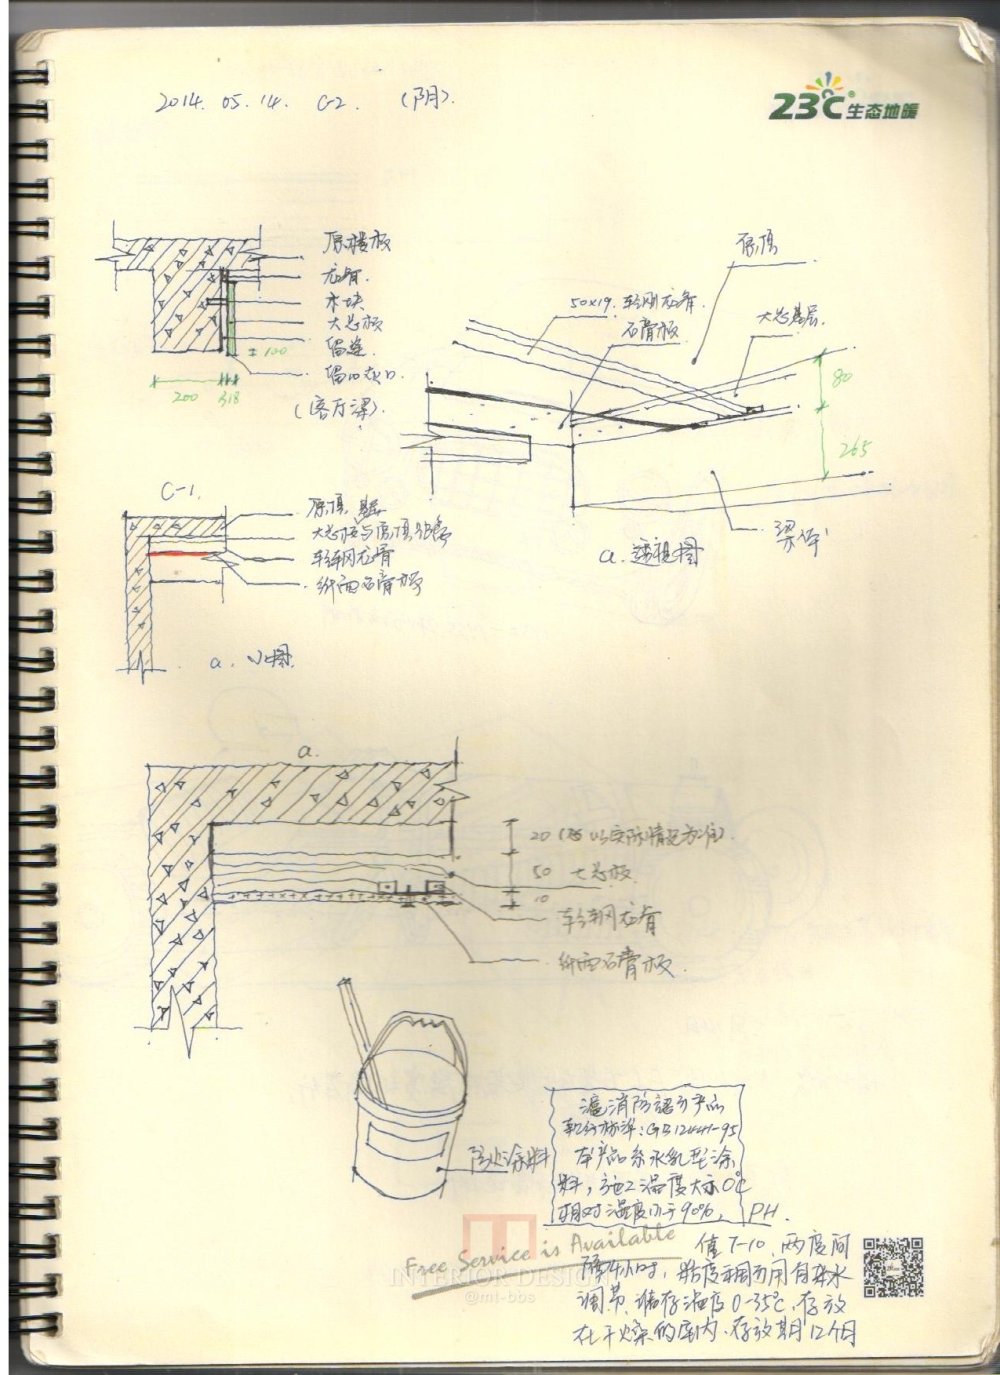 2014. 05. 14. C-2. (阴).
23℃生态地暖
原楼板
龙骨.
木块.
大芯板
±100
200
318
(客厅梁).
原顶
50x19. 轻刚龙骨.
石膏板
大芯基层.
80
265
梁体
a. 透视图
C-1.
原顶 基层
大芯板与原顶
轻钢龙骨
纸面石膏板
a.
a.
20 (以实际情况为准).
50 大芯板
10
轻钢龙骨
纸面石膏板.
防火涂料
沪消防認可产品
執行标准:GB12441-95
本产品系水乳型涂
料,施工温度大于0℃
相对湿度小于90%, PH.
值7-10,两度间
隔4小时,粘度稠可用自来水
调节.储存温度0-35℃.存放
在干燥的库内.存放期12个月
Free Service is Available
INTERIOR DESIGN
@mt-bbs